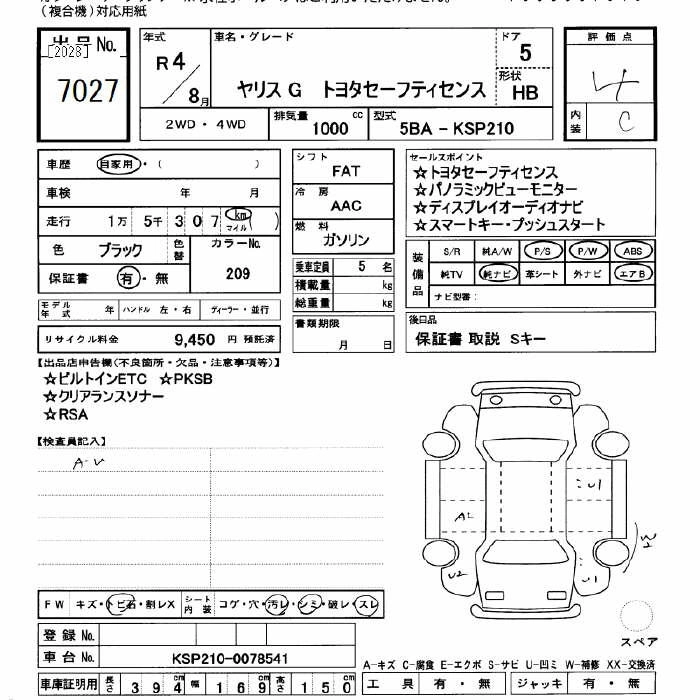 (複合機)対応用紙
出品No.
[2028]
7027
年式
R4/8月
車名・グレード
ヤリス G トヨタセーフティセンス
ドア 5
形状 HB
評価点
4
内装 C
2WD・4WD
排気量 1000 cc
型式 5BA - KSP210
車歴 自家用・( )
車検 年 月
走行 1万 5千 3 0 7 km マイル ( )
色 ブラック 色替
カラーNo. 209
保証書 有・無
モデル年式 年 ハンドル 左・右 ディーラー・並行
リサイクル料金 9,450 円 預託済
シフト FAT
冷房 AAC
燃料 ガソリン
乗車定員 5 名
積載量 kg
総重量 kg
書類期限 月 日
セールスポイント
☆トヨタセーフティセンス
☆パノラミックビューモニター
☆ディスプレイオーディオナビ
☆スマートキー・プッシュスタート
装備品
S/R 純A/W P/S P/W ABS
純TV 純ナビ 革シート 外ナビ エアB
ナビ型番:
後日品
保証書 取説 Sキー
【出品店申告欄(不良箇所・欠品・注意事項等)】
☆ビルトインETC ☆PKSB
☆クリアランスソナー
☆RSA
【検査員記入】
A-U
U1
AL
U2
U1
W2
FW キズ・トビ石・割レX シート内装 コゲ・穴・汚レ・シミ・破レ・スレ
登録No.
車台No. KSP210-0078541
スペア
A-キズ C-腐食 E-エクボ S-サビ U-凹ミ W-補修 XX-交換済
車庫証明用 長さ 394 cm 幅 169 cm 高さ 150 cm
工具 有・無 ジャッキ 有・無